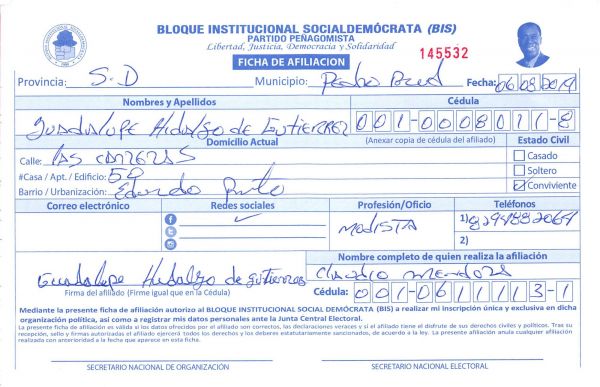 BLOQUE INSTITUCIONAL SOCIALDEMÓCRATA (BIS)
PARTIDO PEÑAGOMISTA
Libertad, Justicia, Democracia y Solidaridad
FICHA DE AFILIACION
145532
Provincia: S.D Municipio: Pedro Brand Fecha: 06/08/2019
Nombres y Apellidos Cédula
Guadalupe Hidalgo de Gutierrez 001-0008011-8
Domicilio Actual (Anexar copia de cédula del afiliado) Estado Civil
Calle: Las Carreras
Casado
#Casa / Apt. / Edificio: 59
Soltero
Barrio / Urbanización: Eduardo Brito
Conviviente
Correo electrónico Redes sociales Profesión/Oficio Teléfonos
Modista 1) 8294882069
2)
Nombre completo de quien realiza la afiliación
Guadalupe Hidalgo de Gutierrez Claudio Mendoza
Firma del afiliado (Firme igual que en la Cédula) Cédula: 001-0611113-1
Mediante la presente ficha de afiliación autorizo al BLOQUE INSTITUCIONAL SOCIAL DEMÓCRATA (BIS) a realizar mi inscripción única y exclusiva en dicha
organización política, así como a registrar mis datos personales ante la Junta Central Electoral.
La presente ficha de afiliación es válida si los datos ofrecidos por el afiliado son correctos, las declaraciones veraces y si el afiliado tiene el disfrute de sus derechos civiles y políticos. Tras su
recepción, sello y firmas autorizadas el afiliado ejercerá todos los derechos y los deberes estatutariamente sancionados, de acuerdo a la ley. La presente afiliación anula cualquier afiliación
realizada con anterioridad a la fecha que aparece en esta ficha.
SECRETARIO NACIONAL DE ORGANIZACIÓN SECRETARIO NACIONAL ELECTORAL